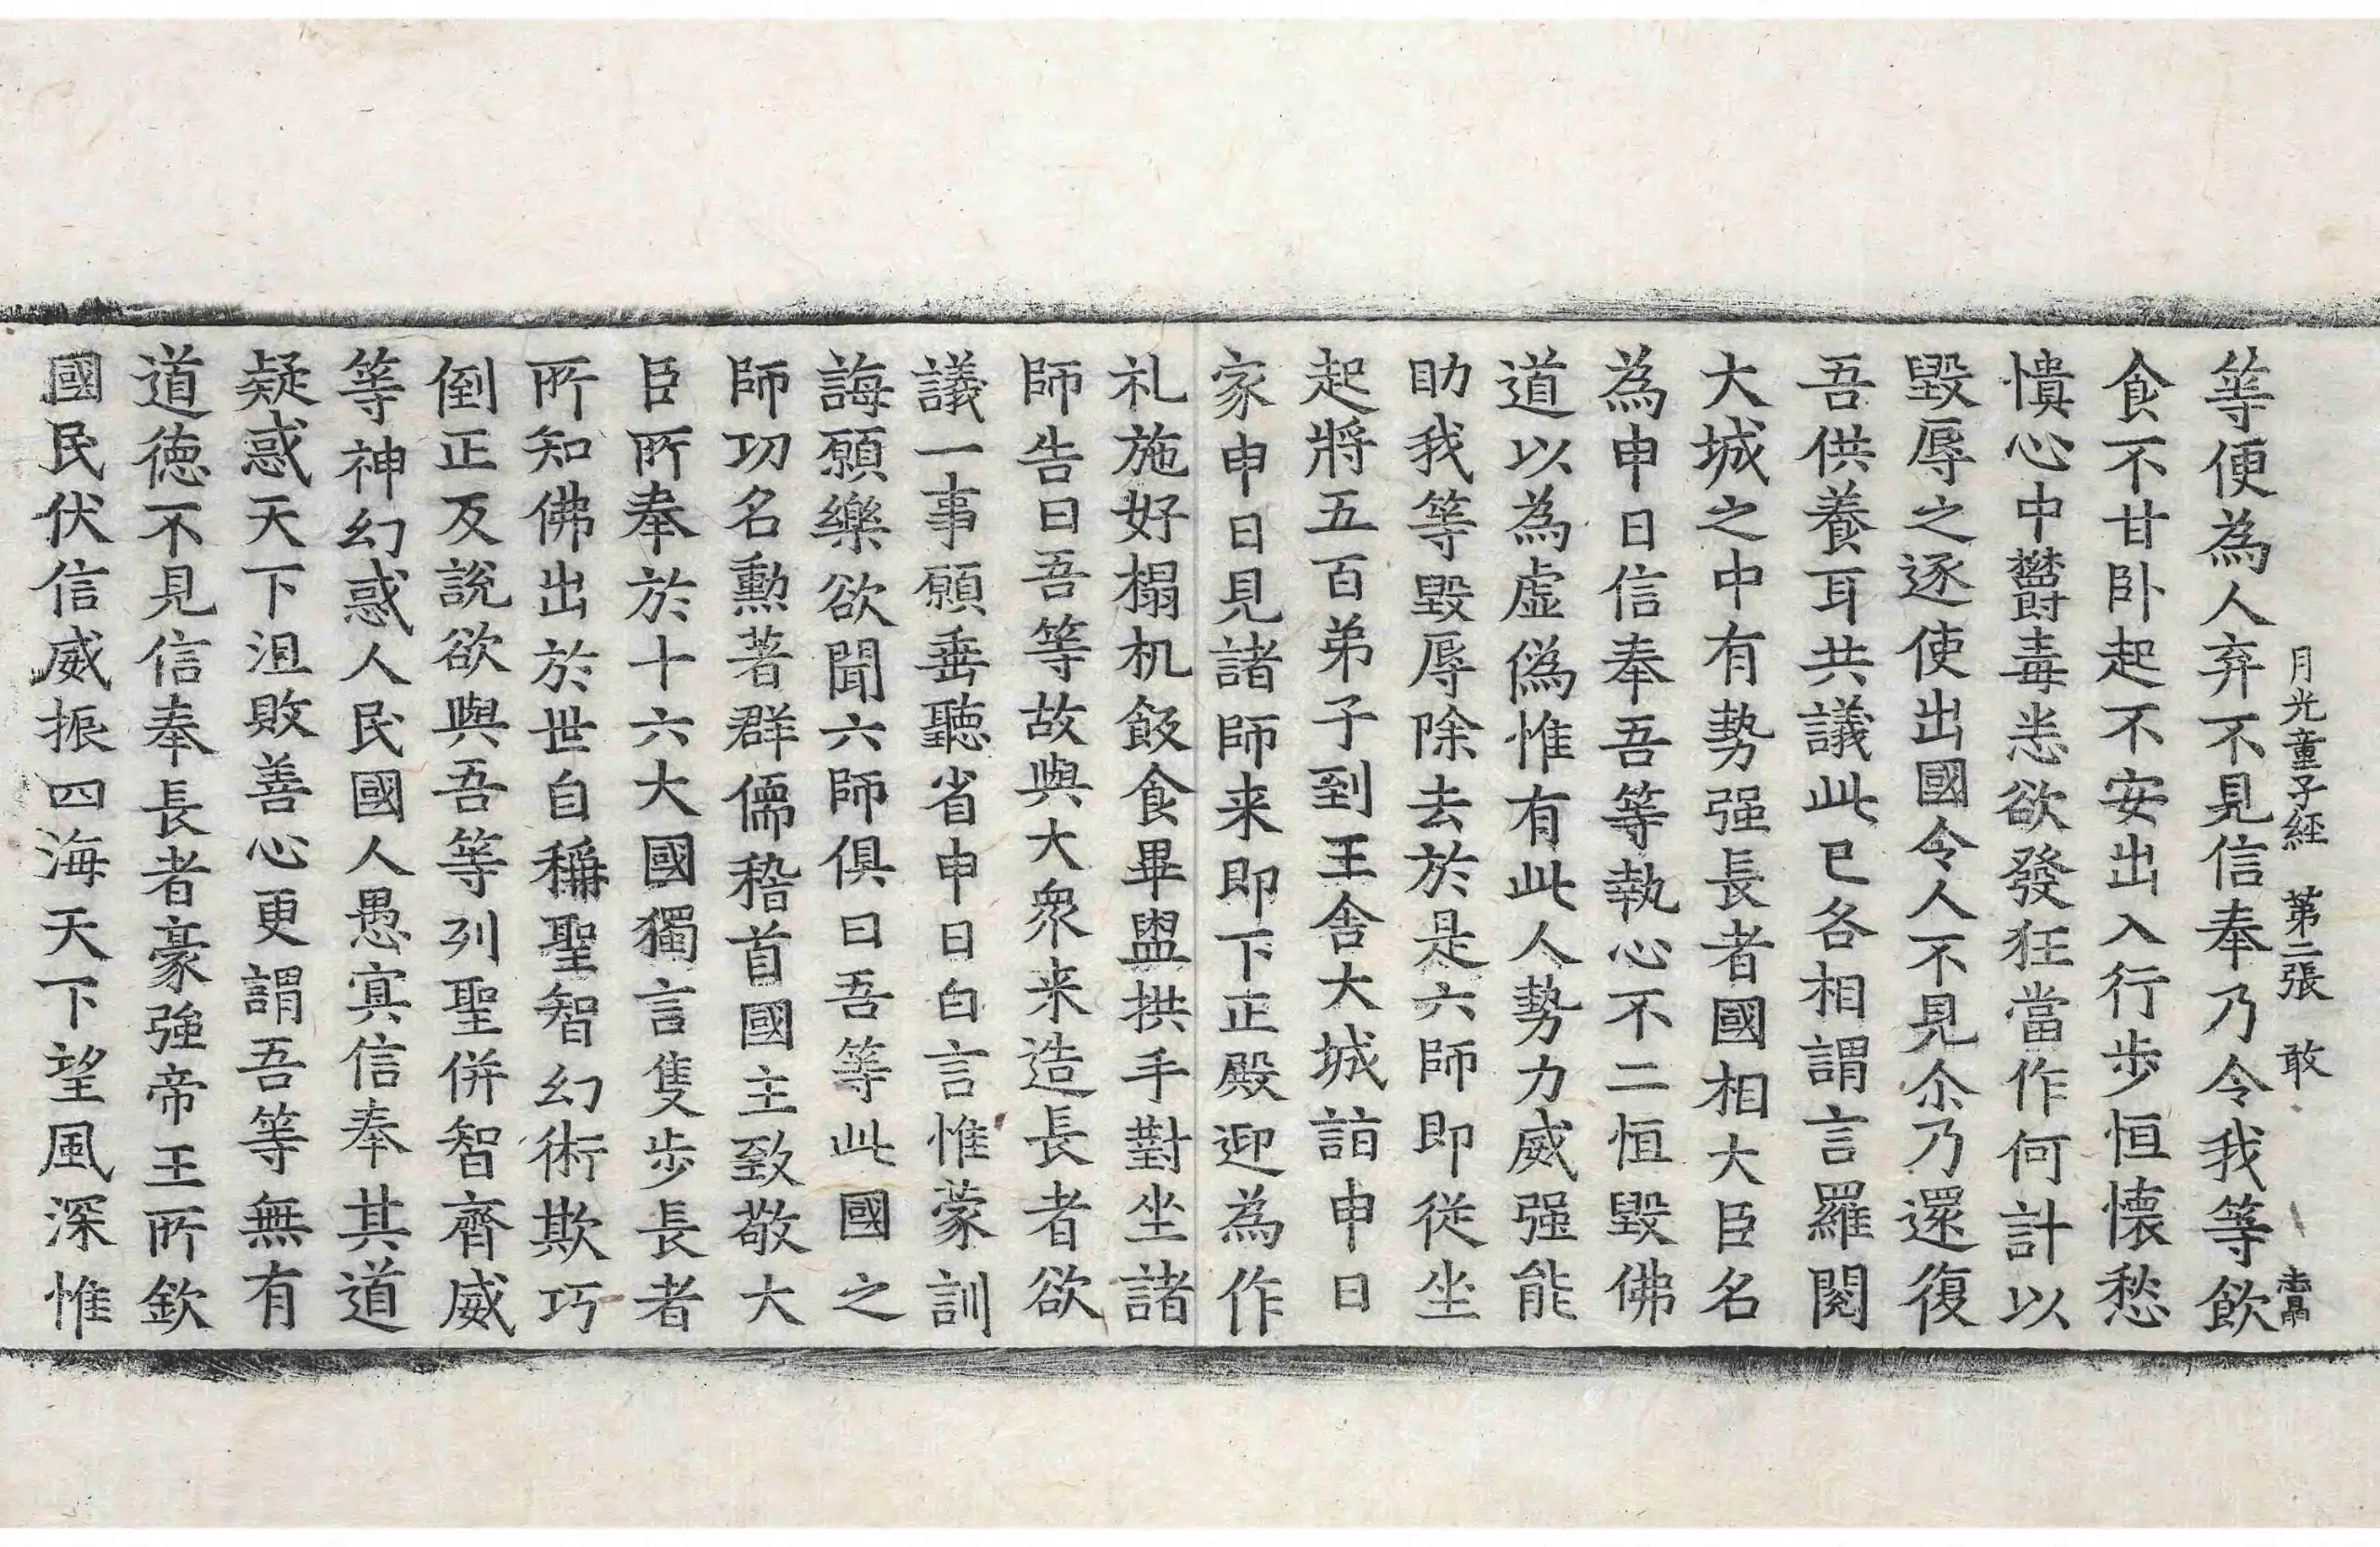 月光童子經 第二張 敢
等便為人弃不見信奉乃令我等飲
食不甘卧起不安出入行步恒懷愁
憒心中欝毒恙欲發狂當作何計以
毀辱之逐使出國令人不見尒乃還復
吾供養耳共議此已各相謂言羅閱
大城之中有勢强長者國相大臣名
為申日信奉吾等執心不二恒毀佛
道以為虛僞惟有此人勢力威强能
助我等毀辱除去於是六師即從坐
起將五百弟子到王舍大城詣申日
家申日見諸師来即下正殿迎為作
礼施好榻机飯食畢盥拱手對坐諸
師告曰吾等故與大衆来造長者欲
議一事願垂聽省申日白言惟蒙訓
誨願樂欲聞六師俱曰吾等此國之
師功名勲著群儒稽首國主致敬大
臣所奉於十六大國獨言隻步長者
所知佛出於世自稱聖智幻術欺巧
倒正反說欲與吾等列聖併智齊威
等神幻惑人民國人愚冥信奉其道
疑惑天下沮敗善心更謂吾等無有
道德不見信奉長者豪強帝王所欽
國民伏信威振四海天下望風深惟